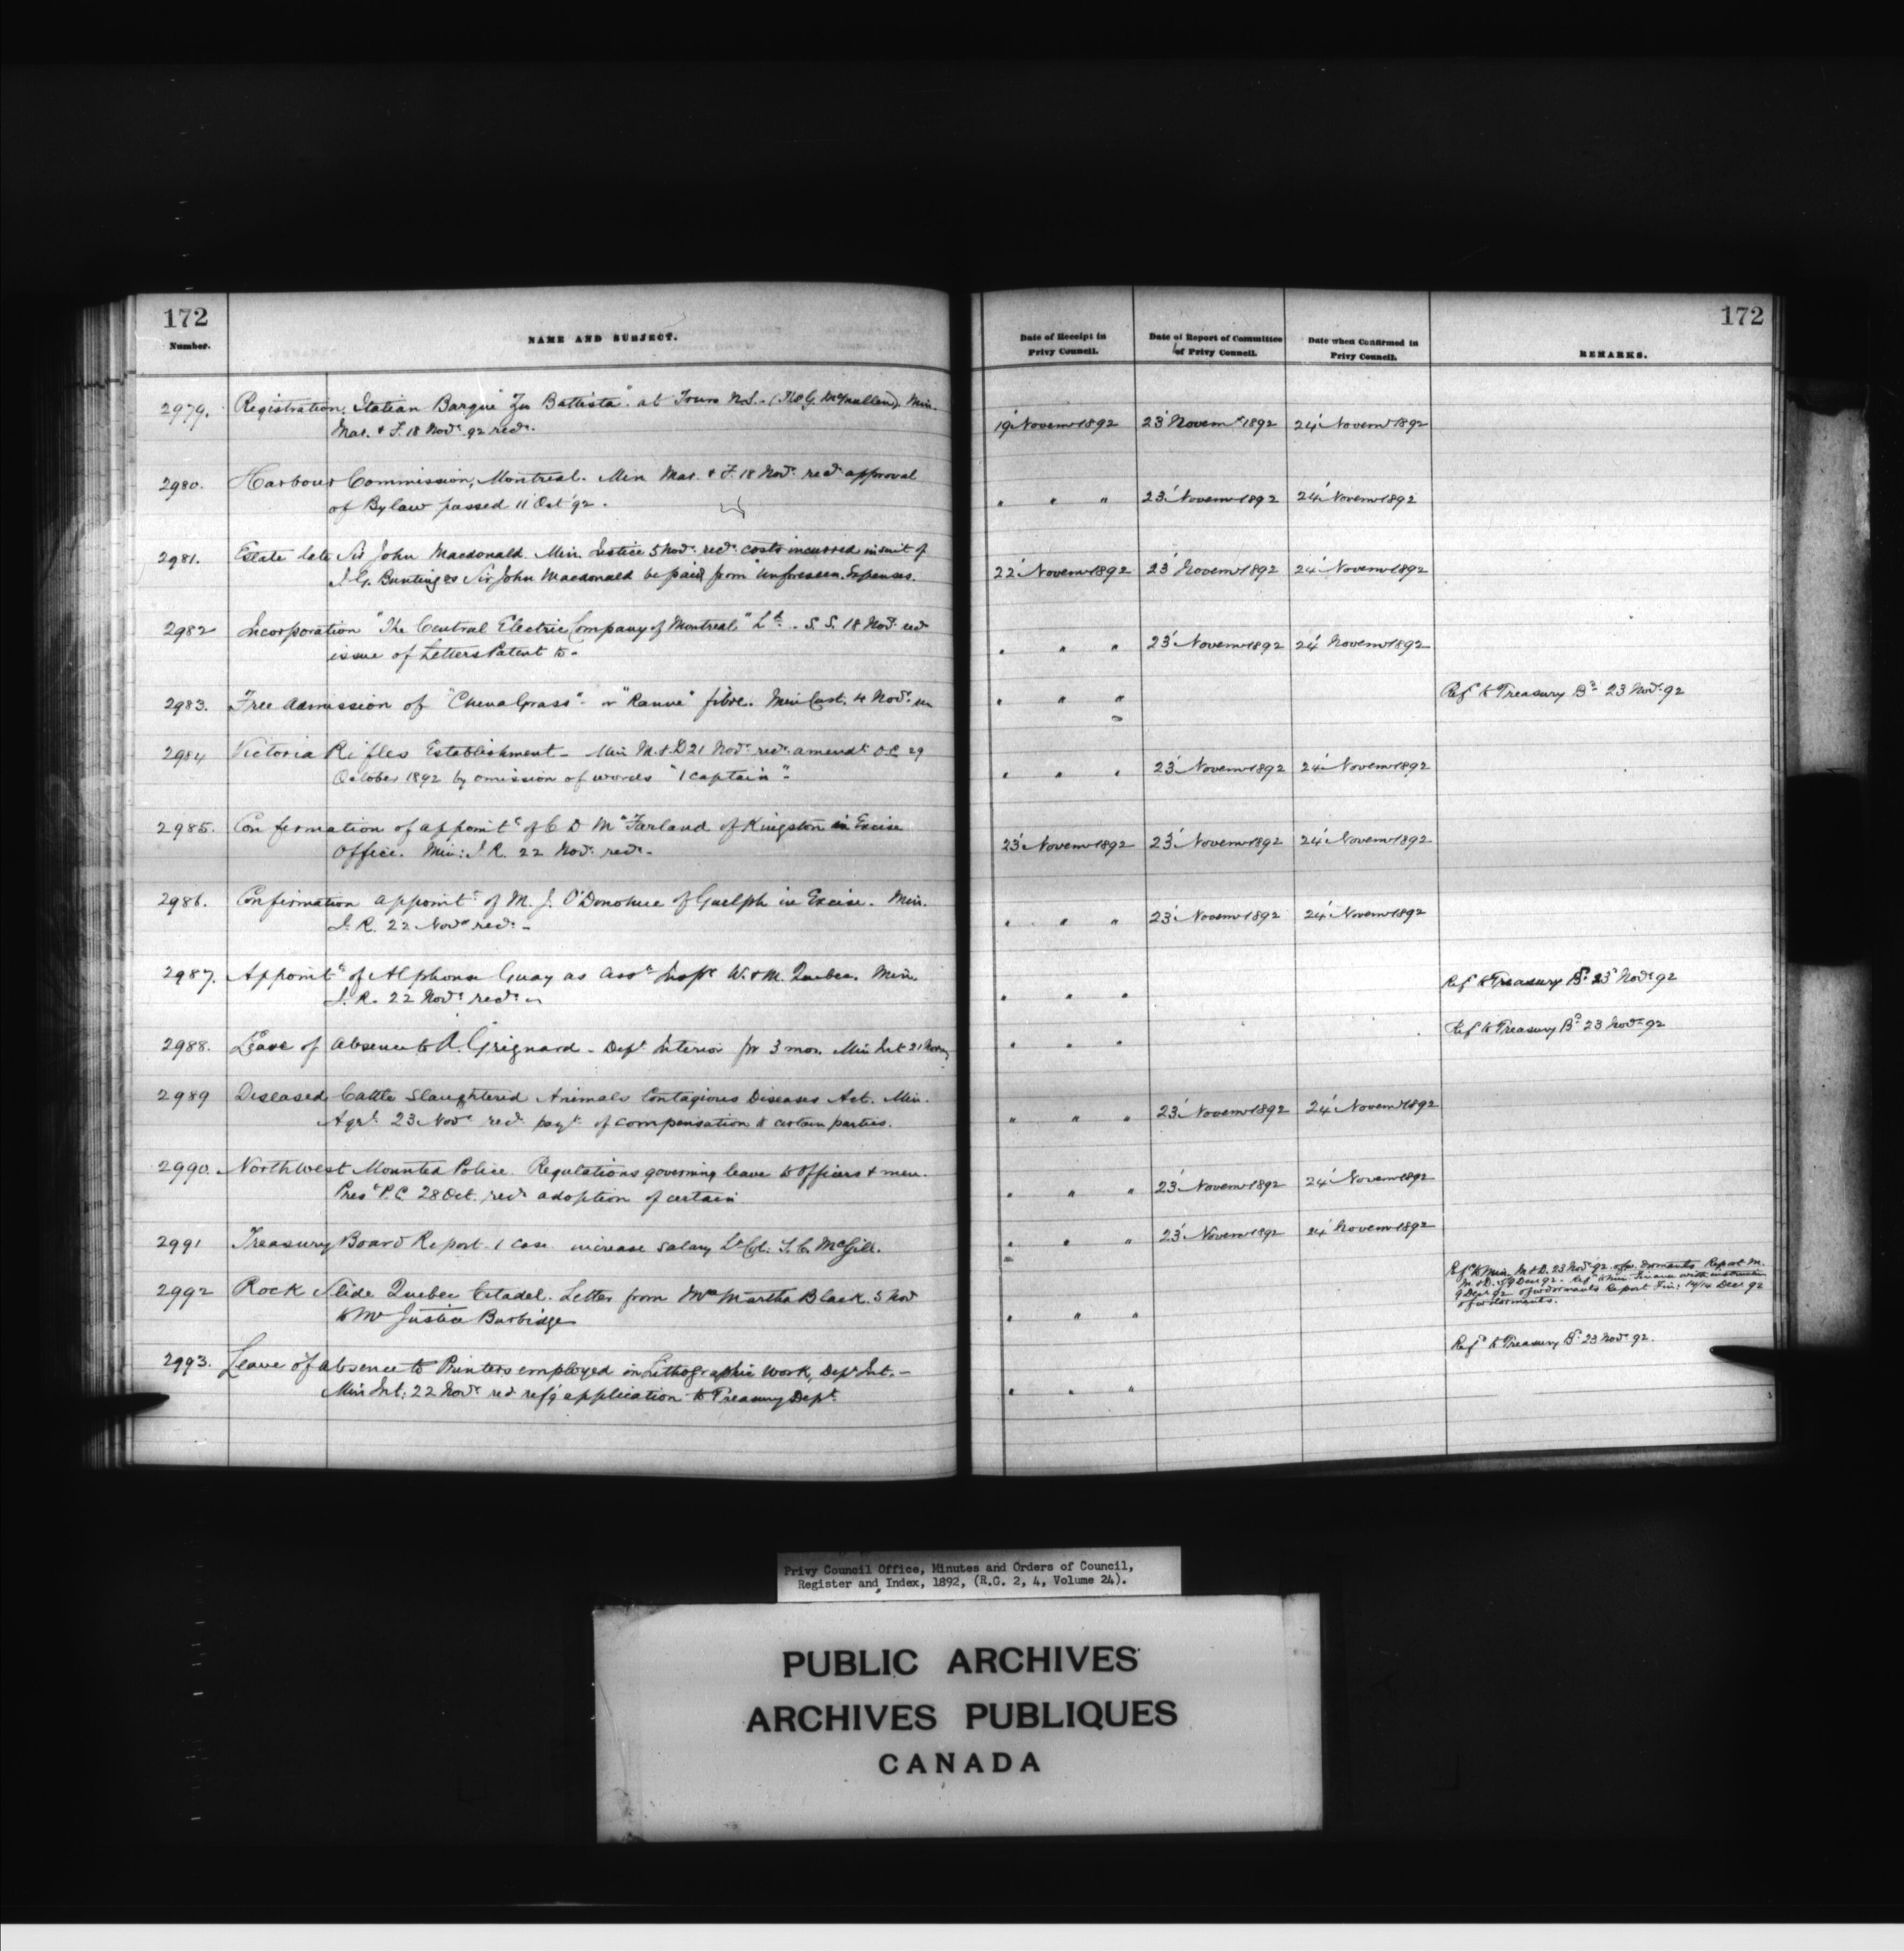 172
Number.
NAME AND SUBJECT.
Date of Receipt in
Privy Council.
Date of Report of Committee
of Privy Council.
Date when Confirmed in
Privy Council.
REMARKS.
172
2979. Registration, Italian Barque "Zio Battista" at Truro N.S. - McMullen). Min.
Mar. & F. 18 Nov.r 92 recd.
19' Novemr 1892 23' Novemr 1892 24' Novemr 1892
2980. Harbour Commission, Montreal. Min Mar. & F. 18 Nov.r recd. approval
of Bylaw passed 11 Oct '92.
" " " 23' Novemr 1892 24' Novemr 1892
2981. Estate late Sir John Macdonald. Min. Justice 5 Nov.r recd. costs incurred in suit of
Bunting vs Sir John Macdonald be paid from "Unforeseen Expenses.
22' Novemr 1892 23' Novemr 1892 24' Novemr 1892
2982 Incorporation "The Central Electric Company of Montreal" Ld. - S.S. 18 Nov.r recd
issue of Letters Patent to -
" " " 23' Novemr 1892 24' Novemr 1892
2983. Free admission of "China Grass" - or "Ramie" fibre. Min Cust. 4 Nov.r
" " " Refd to Treasury Bd 23 Nov.r 92
2984 Victoria Rifles Establishment - Min M. & D 21 Nov.r recd. amendt O.C. 29
October 1892 by omission of words "1 Captain" -
" " " 23' Novemr 1892 24' Novemr 1892
2985. Confirmation of appointt of C D McFarland of Kingston in Excise
Office. Min: I.R. 22 Nov.r recd. -
23' Novemr 1892 23' Novemr 1892 24' Novemr 1892
2986. Confirmation appointt of M. J. O'Donohue of Guelph in Excise. Min.
I.R. 22 Nov.r recd. -
" " " 23' Novemr 1892 24' Novemr 1892
2987. Appointt of Alphonse Guay as Asst Inspr W. & M. Quebec. Min.
I.R. 22 Nov.r recd. -
" " " Refd to Treasury Bd 23 Nov.r 92
2988. Leave of absence to A. Grignard - Dept Interior for 3 mos. Min Int 21 Nov
" " " Refd to Treasury Bd 23 Nov.r 92
2989 Diseased Cattle Slaughtered Animals Contagious Diseases Act. Min.
Agrl. 23 Nov.r recd. payt of compensation to certain parties.
" " " 23' Novemr 1892 24' Novemr 1892
2990. Northwest Mounted Police. Regulations governing leave to officers & men.
Prest P.C. 28 Oct. recd. adoption of certain
" " " 23' Novemr 1892 24' Novemr 1892
2991 Treasury Board Report. 1 case increase salary Lt Col: S. C. McGill.
" " " 23' Novemr 1892 24' Novemr 1892
2992 Rock Slide Quebec Citadel. Letter from Mrs Martha Black 3 Nov
to Mr Justice Burbidge
" " "
Refd to Min M & D. 23 Nov.r 92 Report M.
M. & D. 9 Decr 92. Refd to Min Finance with
9 Decr 92 Report Fin: Decr 92
2993. Leave of absence to Printers employed in Lithographic work, Dept Int. -
Min Int: 22 Nov.r recd refg application to Treasury Dept
" " " Refd to Treasury Bd 23 Nov.r 92.
Privy Council Office, Minutes and Orders of Council,
Register and Index, 1892, (R.G. 2, 4, Volume 24).
PUBLIC ARCHIVES
ARCHIVES PUBLIQUES
CANADA